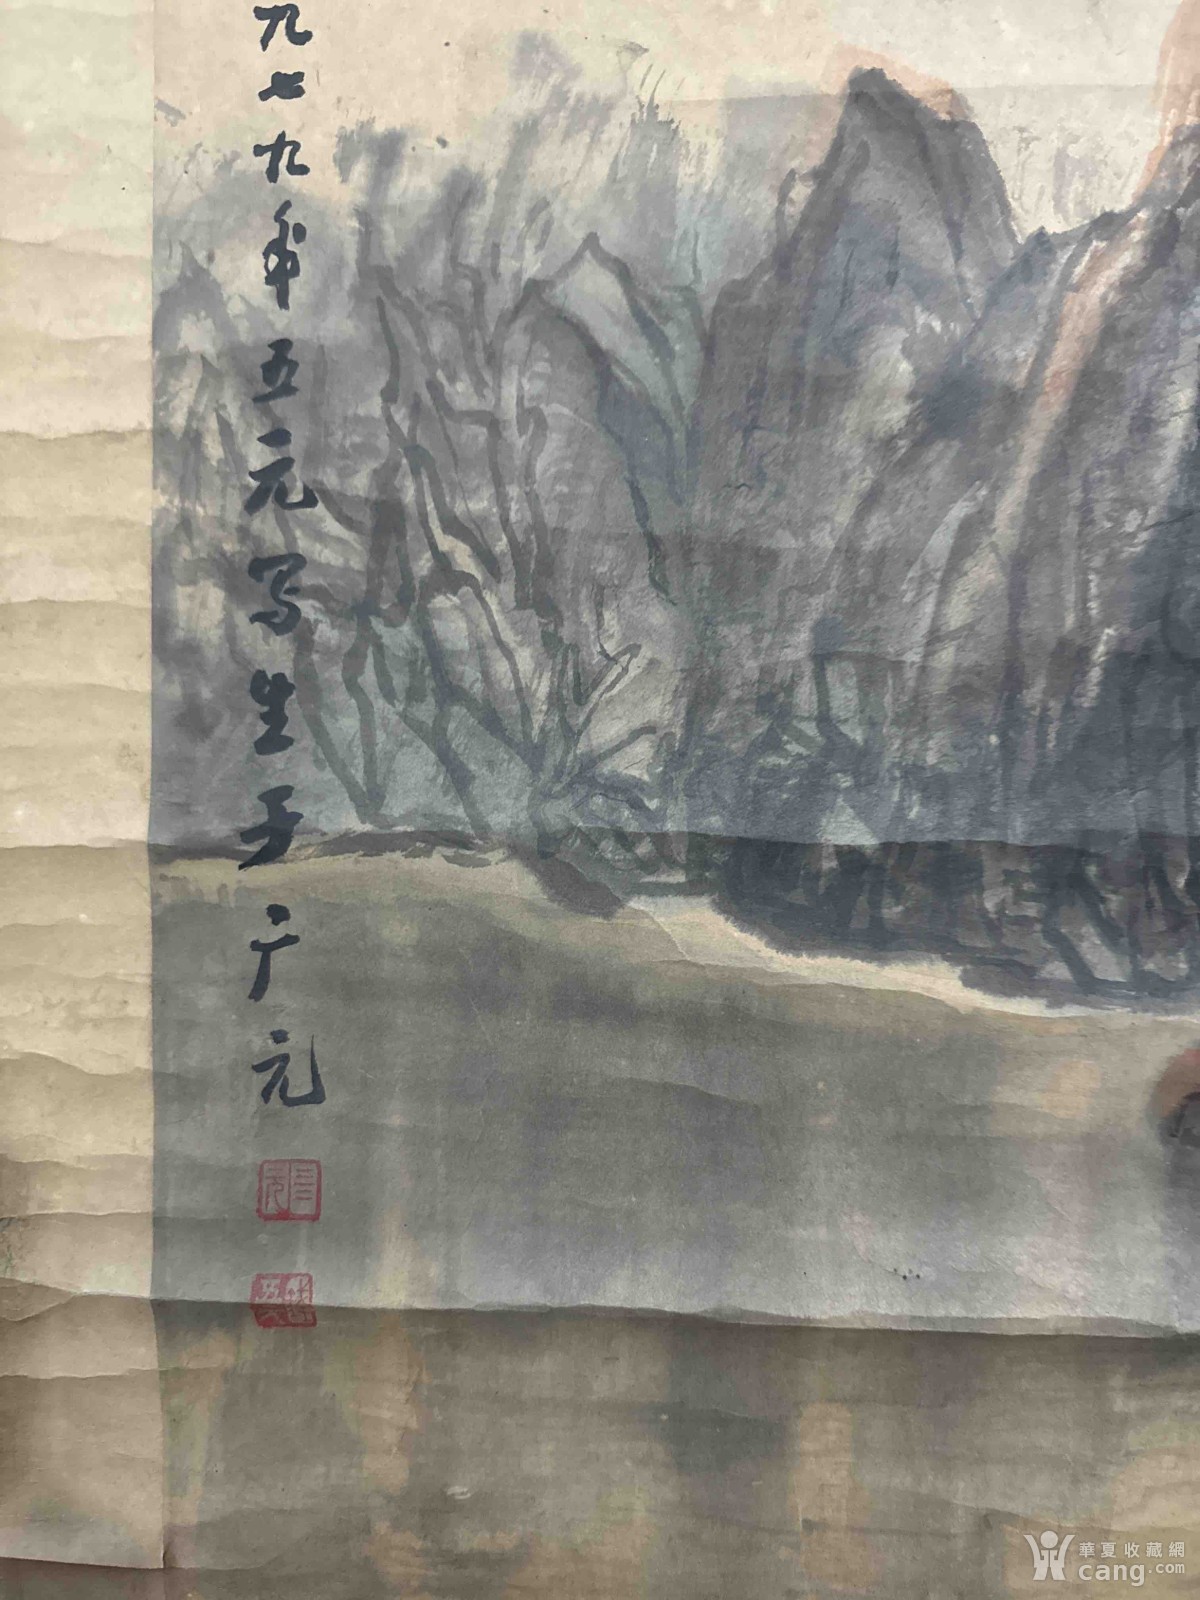 九七九年五元写生于广元
華夏收藏網
cang.com